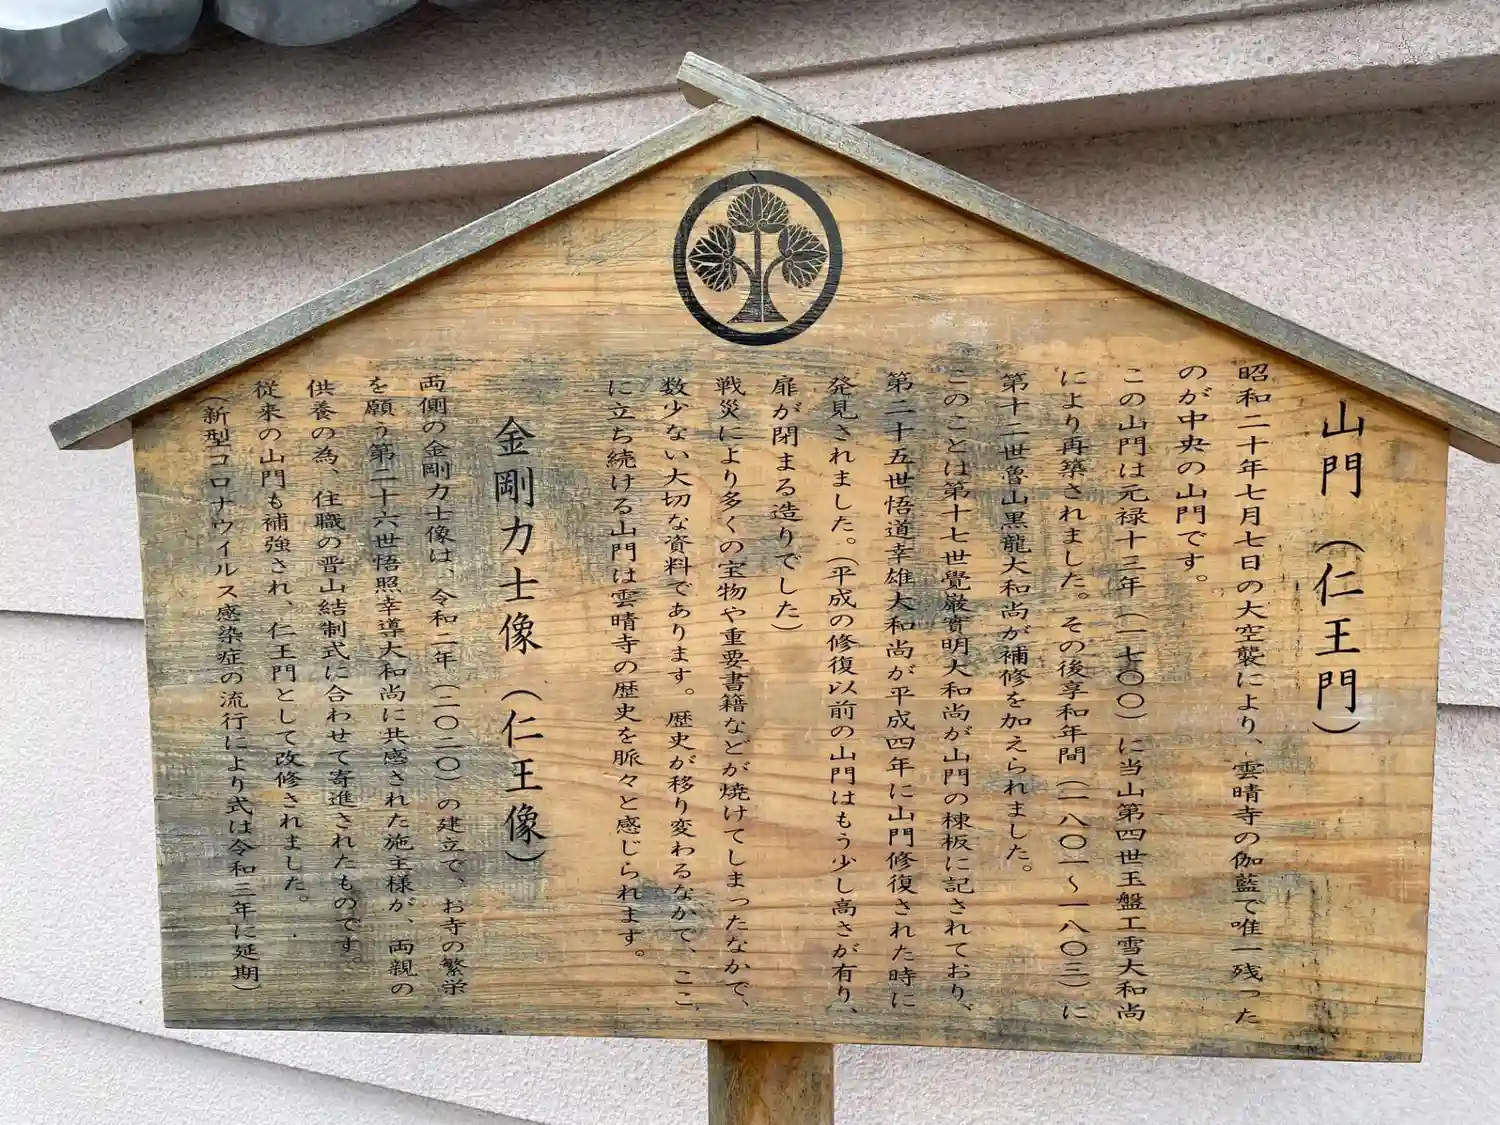 山門（仁王門）
昭和二十年七月七日の大空襲により、雲晴寺の伽藍で唯一残った
のが中央の山門です。
この山門は元禄十三年（一七〇〇）に当山第四世玉盤工雪大和尚
により再築されました。その後享和年間（一八〇一～一八〇三）に
第十二世魯山黒龍大和尚が補修を加えられました。
このことは第十七世覺巌實明大和尚が山門の棟板に記されており、
第二十五世悟道幸雄大和尚が平成四年に山門修復された時に
発見されました。（平成の修復以前の山門はもう少し高さが有り、
扉が閉まる造りでした）
戦災により多くの宝物や重要書籍などが焼けてしまったなかで、
数少ない大切な資料であります。歴史が移り変わるなかで、ここ
に立ち続ける山門は雲晴寺の歴史を脈々と感じられます。
金剛力士像（仁王像）
両側の金剛力士像は、令和二年（二〇二〇）の建立で、お寺の繁栄
を願う第二十六世悟照幸導大和尚に共感された施主様が、両親の
供養の為、住職の晋山結制式に合わせて寄進されたものです。
従来の山門も補強され、仁王門として改修されました。
（新型コロナウイルス感染症の流行により式は令和三年に延期）